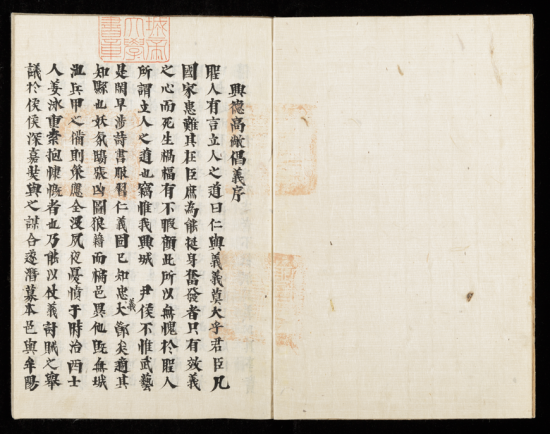 興德高敞倡義序
聖人有言立人之道曰仁與義義莫大乎君臣凡
國家患難其在臣庶為能挺身奮發者只有效義
之心而死生禍福有不暇顧此所以無愧於聖人
所謂立人之道也竊惟我興城 尹侯不惟武藝
是閑早涉詩書服習仁義固已知忠義大節矣適其
知縣也妖氛陽張凶圖狼藉而橘邑異他既無城
沮兵甲之備則策應全沒夙夜憂憤于時治西士
人姜泳重素抱慷慨者也乃能以仗義討賊之舉
議於侯侯深嘉奘與之謀合遂潛募本邑與牟陽